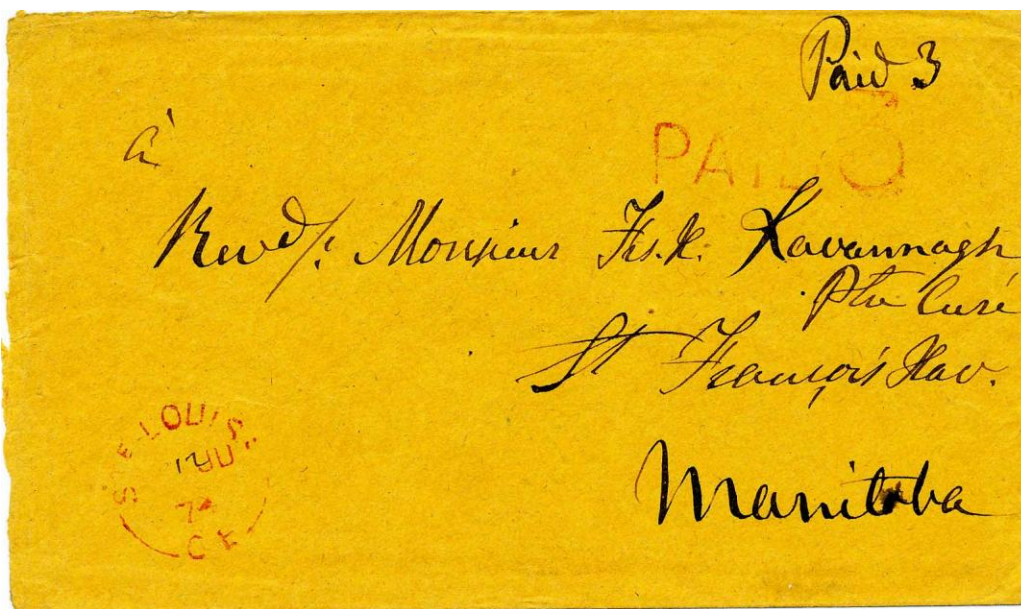 Paid 3
PAID 3
à
Revd/. Monsieur Frs. X. Kavannagh
Ptre Curé
St François Xav.
Manitoba
STE. LOUISE
AU
74
C E